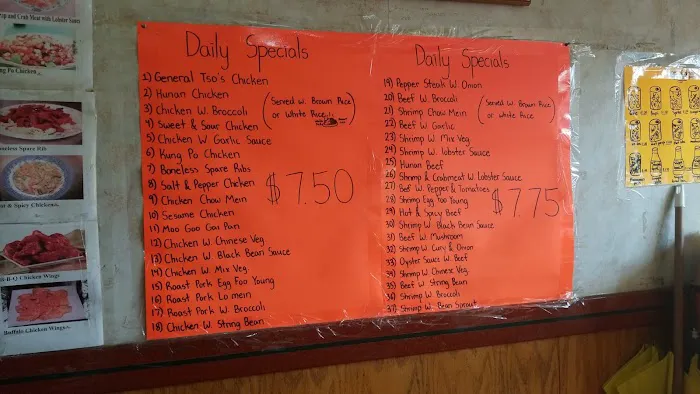 Pep and Crab Meat with Lobster Sauce
ng Po Chicken
oneless Spare Rib
t & Spicy Chicken
B-B-Q Chicken Wings
Buffalo Chicken Wings
Daily Specials
1) General Tso's Chicken
2) Hunan Chicken
3) Chicken W. Broccoli
4) Sweet & Sour Chicken
5) Chicken W Garlic Sauce
6) Kung Po Chicken
7) Boneless Spare Ribs
8) Salt & Pepper Chicken
9) Chicken Chow Mein
10) Sesame Chicken
11) Moo Goo Gai Pan
12) Chicken W Chinese Veg.
13) Chicken W. Black Bean Sauce
14) Chicken W Mix Veg.
15) Roast Pork Egg Foo Young
16) Roast Pork Lo mein
17) Roast Pork W. Broccoli
18) Chicken W. String Bean
(Served w. Brown Rice
or White Rice...)
$7.50
Daily Specials
19) Pepper Steak W. Onion
20) Beef W. Broccoli
21) Shrimp Chow Mein
22) Beef W Garlic
23) Shrimp W Mix Veg
24) Shrimp W. lobster Sauce
25) Hunan Beef
26) Shrimp & Crabmeat W. Lobster Sauce
27) Beef W. Pepper & Tomatoes
28) Shrimp Egg Foo Young
29) Hot & Spicy Beef
30) Shrimp W. Black Bean Sauce
31) Beef W. Mushroom
32) Shrimp W. Curry & Onion
33) Oyster Sauce W. Beef
34) Shrimp W. Chinese Veg.
35) Beef W String Bean
36) Shrimp W. Broccoli
37) Shrimp W. Bean Sprout
(Served w. Brown Rice
or White Rice)
$7.75